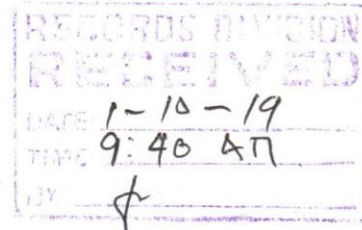 RECORDS DIVISION
RECEIVED
DATE 1-10-19
TIME 9:40 AM
BY